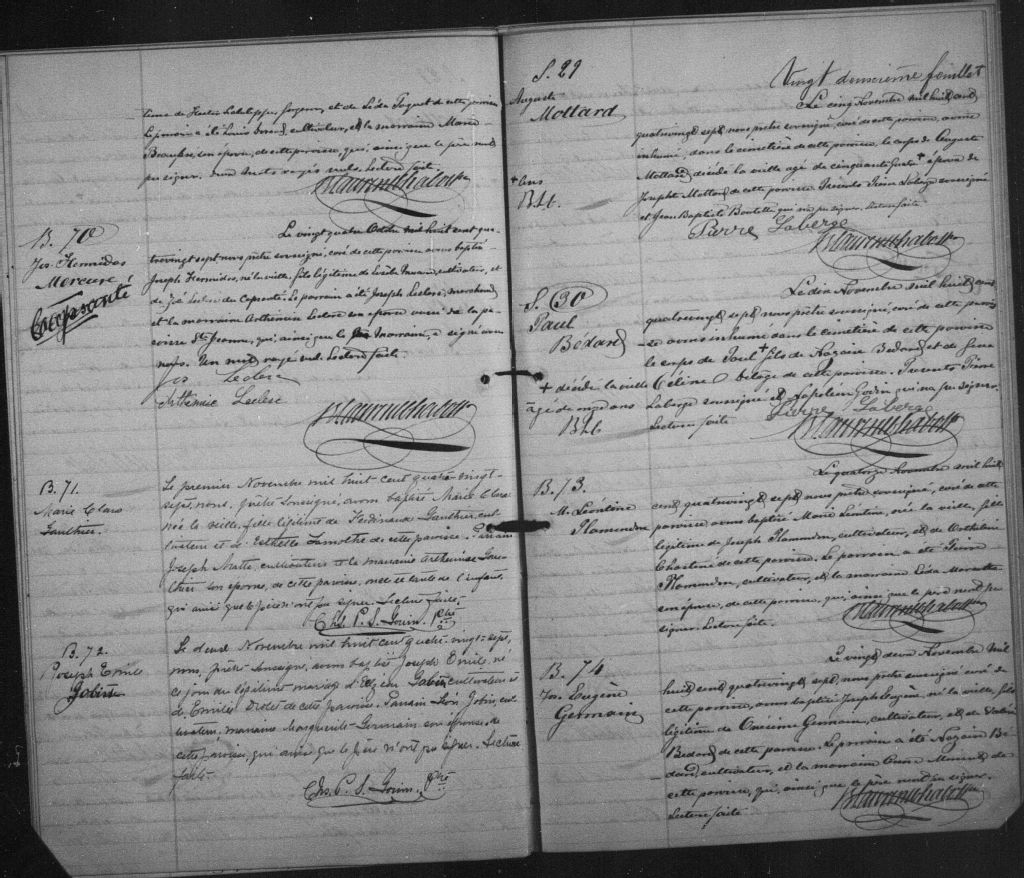 time de Hector Lahaleppe, forgeron, et de Léda Paquet de cette paroisse
Le parrain a été Louis cultivateur, et la marraine Marie
Beaupré son épouse, de cette paroisse, qui, ainsi que le père n'ont
pu signer. mots rayés nuls. Lecture faite
B. 70
Jos. Hermidas
Mercure
Capsanté
Le vingt quatre Octobre mil huit cent qua-
trevingt sept nous prêtre soussigné, curé de cette paroisse avons baptisé
Joseph Hermidas, né la veille, fils légitime de cultivateur, et
de Leclerc du Capsanté. Le parrain a été Joseph Leclerc, marchand
et la marraine Arthémise Leclerc son épouse aussi de la pa-
roisse Ste Jeanne, qui, ainsi que le marraine, a signé avec
nous. Un mot rayé nul. Lecture faite
Jos Leclerc
Arthémise Leclerc
B. 71.
Marie Clara
Gauthier.
Le premier Novembre mil huit cent quatre-vingt-
sept, nous, prêtre soussigné, avons baptisé Marie Clara
née la veille, fille légitime de Ferdinand Gauthier, cul-
tivateur et de Esthelle Lamothe de cette paroisse. Parrain
Joseph Matte, cultivateur et la marraine Arthémise Gau-
thier son épouse, de cette paroisse, oncle et tante de l'enfant,
qui ainsi que le père n'ont pu signer. Lecture faite.
Chs. P. S. Gouin. Ptre
B. 72.
Joseph Emile
Gobin
Le deux Novembre mil huit cent quatre-vingt-sept,
nous, prêtre soussigné, avons baptisé Joseph Emile, né
ce jour du légitime mariage d'Elzéar Gobin, cultivateur et
de Emilie Drolet de cette paroisse. Parrain Léon Gobin, cul-
tivateur, marraine Marguerite Germain son épouse, de
cette paroisse, qui ainsi que le père n'ont pu signer. Lecture
faite
Chs. P. S. Gouin. Ptre
Vingt deuxième feuillet
S. 29
Auguste
Mottard
+ ans
Le cinq Novembre mil huit cent
quatrevingt sept nous prêtre soussigné, curé de cette paroisse, avons
inhumé, dans le cimetière de cette paroisse, le corps de Auguste
Mottard décédé la veille agé de cinquante quatre + époux de
Josephte Mottard de cette paroisse. Présents Pierre Laberge soussigné
et Jean Baptiste qui n'a pu signer. Lecture faite
Pierre Laberge
S. 30
Paul
Bédard
+ décédé la veille
âgé de ans
Le dix Novembre mil huit cent
quatrevingt sept, nous prêtre soussigné, curé de cette parois-
se avons inhumé dans le cimetière de cette paroisse
le corps de Paul + fils de Nazaire Bédard et de feue
Céline de cette paroisse. Présents Pierre
Laberge soussigné et Napoléon Godin qui n'a pu signer.
Lecture faite
Pierre Laberge
B. 73.
M. Léontine
Plamondon
Le quatorze Novembre mil huit
cent quatrevingt sept nous prêtre soussigné, curé de cette
paroisse avons baptisé Marie Léontine, née la veille, fille
légitime de Joseph Plamondon, cultivateur, et de
de cette paroisse. Le parrain a été Pierre
Plamondon, cultivateur, et la marraine Léda
son épouse, de cette paroisse, qui, ainsi que le père n'ont pu
signer. Lecture faite.
B. 74
Jos. Eugène
Germain
Le vingt deux Novembre mil
huit cent quatrevingt sept, nous prêtre soussigné curé de
cette paroisse, avons baptisé Joseph Eugène, né la veille, fils
légitime de Onésime Germain, cultivateur, et de
Bédard de cette paroisse. Le parrain a été Nazaire Bé-
dard, cultivateur, et la marraine de
cette paroisse, qui, ainsi que le père n'ont pu signer.
Lecture faite